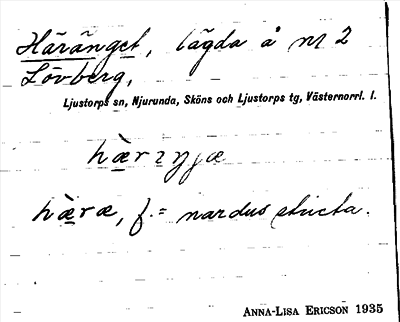 Häränget, lägda å nr 2
Lövberg.
Ljustorps sn, Njurunda, Sköns och Ljustorps tg, Västernorrl. l.
hæ̀rɪŋjæ
hæ̀ræ, f. = nardus stricta.
ANNA-LISA ERICSON 1935